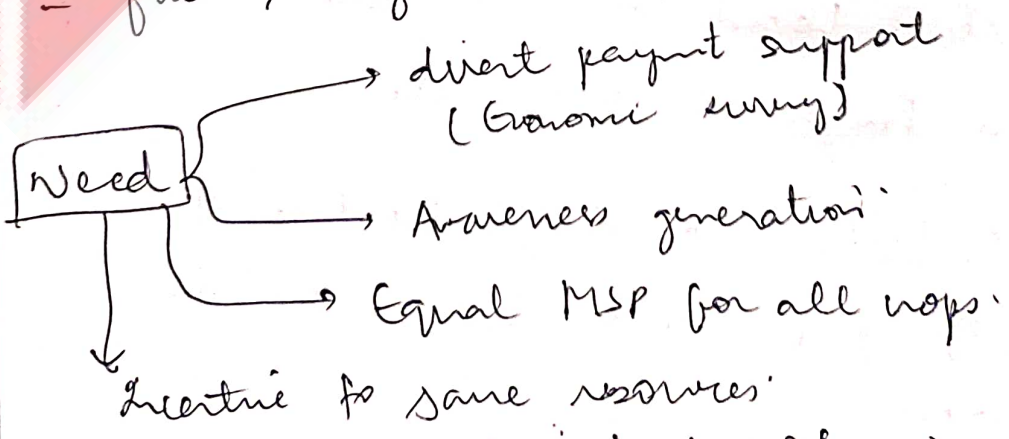 direct paymt support
(Economic survey)
Need
Awareness generation
Equal MSP for all crops.
Incentive to save resources.